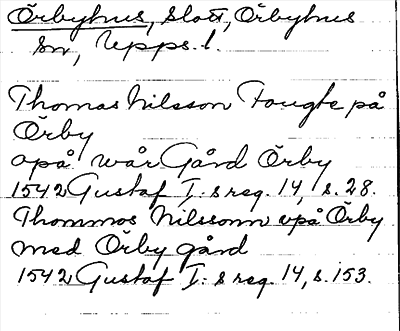 Örbyhus, slott, Örbyhus
sn, Upps. l.
Thomas Nilsson Fougte på
Örby
opå wår Gård Örby
1542 Gustaf I:s reg. 14, s. 28.
Thommos Nilssonn opå Örby
med Örby gård
1542 Gustaf I:s reg. 14, s. 153.